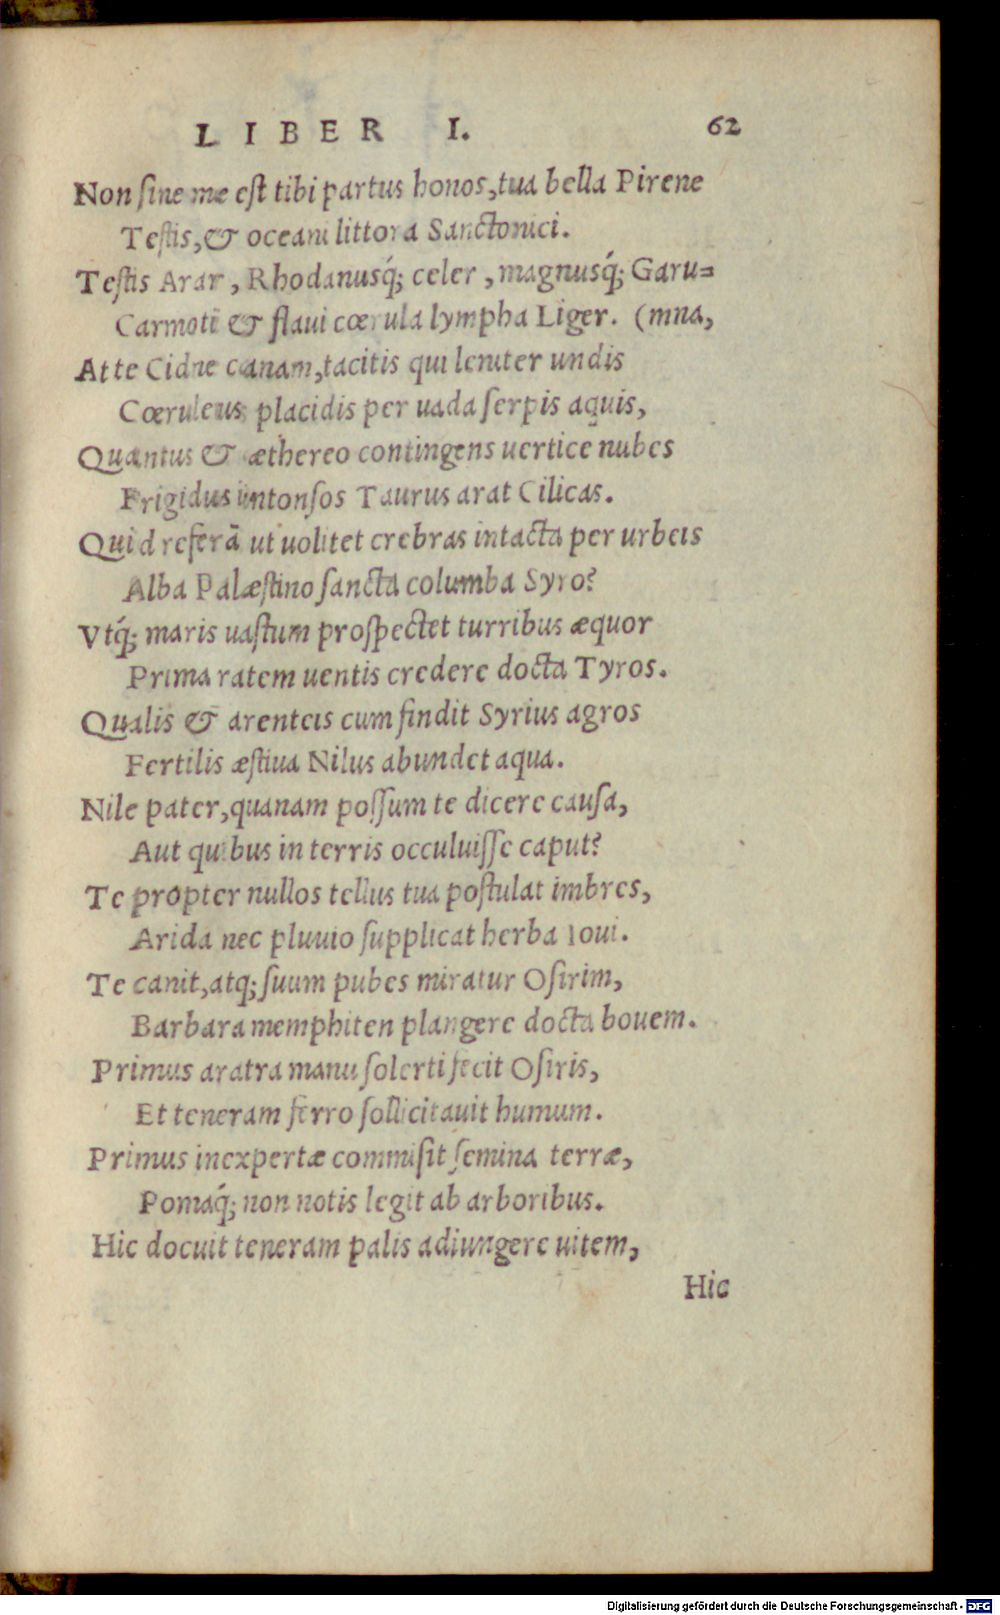 LIBER I. 62
Non sine me est tibi partus honos, tua bella Pirene
Testis, & oceani littora Sanctonici.
Testis Arar, Rhodanusq́; celer, magnusq́; Garu=
Carmoti & flaui cœrula lympha Liger. (mna,
At te Cidne canam, tacitis qui leniter undis
Cœruleus placidis per uada serpis aquis,
Quantus & æthereo contingens uertice nubes
Frigidus intonsos Taurus arat Cilicas.
Quid referā ut uolitet crebras intacta per urbeis
Alba Palæstino sancta columba Syro?
Vtq́; maris uastum prospectet turribus æquor
Prima ratem uentis credere docta Tyros.
Qualis & arenteis cum findit Syrius agros
Fertilis æstiua Nilus abundet aqua.
Nile pater, quanam possum te dicere causa,
Aut quibus in terris occuluisse caput?
Te propter nullos tellus tua postulat imbres,
Arida nec pluuio supplicat herba Ioui.
Te canit, atq; suum pubes miratur Osirim,
Barbara memphiten plangere docta bouem.
Primus aratra manu solerti fecit Osiris,
Et teneram ferro sollicitauit humum.
Primus inexpertæ commisit semina terræ,
Pomaq́; non notis legit ab arboribus.
Hic docuit teneram palis adiungere uitem,
Hic
Digitalisierung gefördert durch die Deutsche Forschungsgemeinschaft - DFG